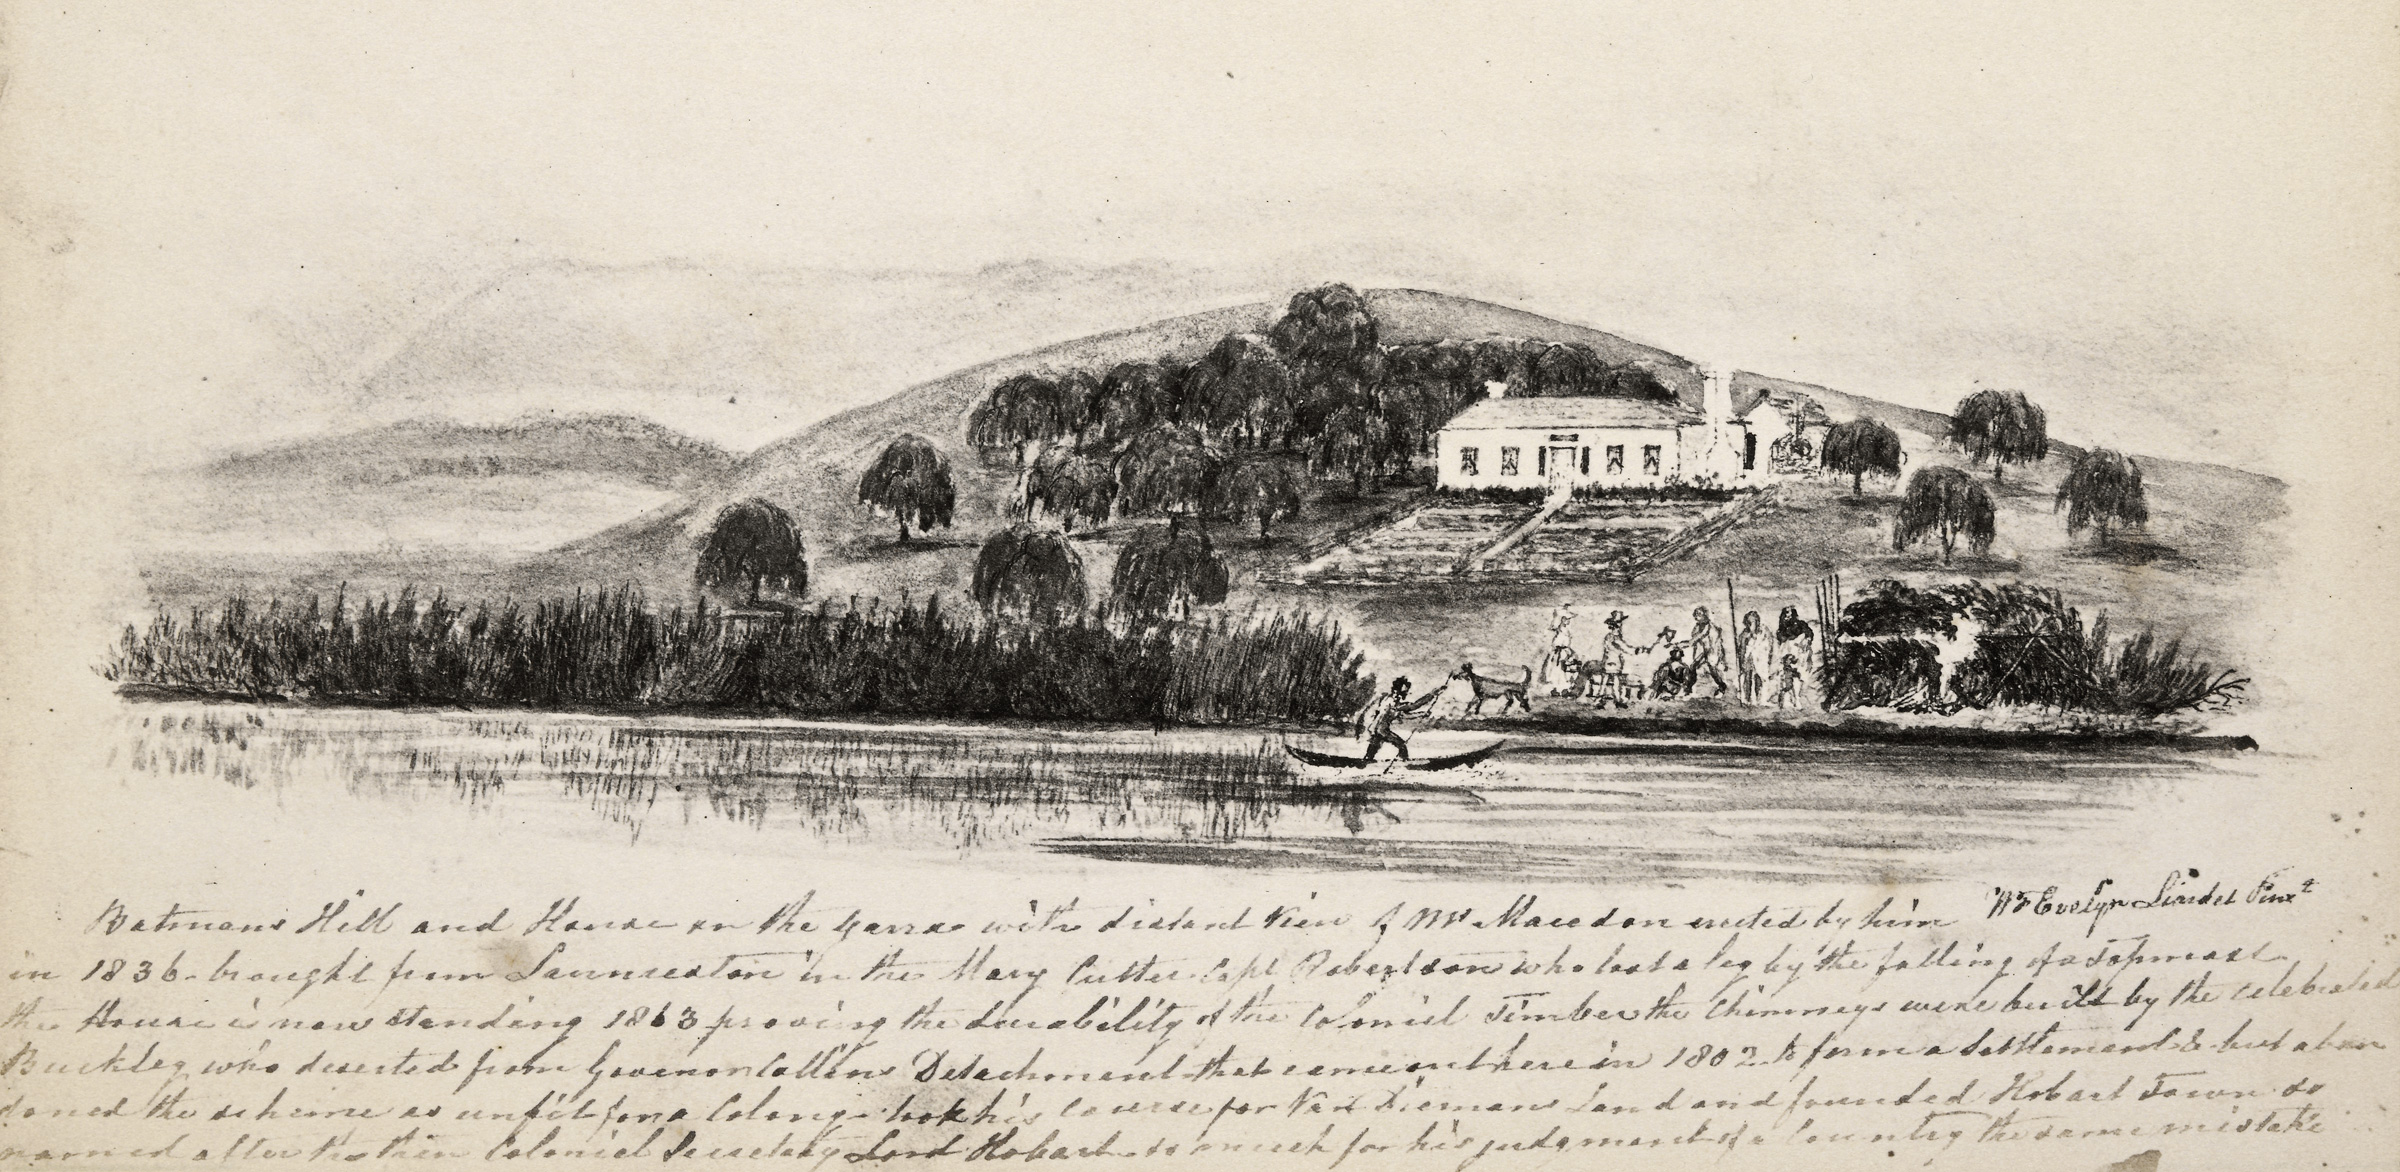 Batmans Hill and House on the Yarra with distant View of Mt Macedon erected by him
W F Evelyn Liardet Pinxt
in 1836 - brought from Launceston in the Mary Cutter Capt Robertson who lost a leg by the falling of a Topmast
the House is now standing 1863 proving the durability of the Colonial Timber the Chimneys were built by the celebrated
Buckley who deserted from Governor Collins Detachment that came out here in 1802 to form a Settlement & but aban
doned the scheme as unfit for a Colony - took his course for Van Diemans Land and founded Hobart Town so
named after the then Colonial Secretary Lord Hobart so much for his judgment of a Country the same mistake